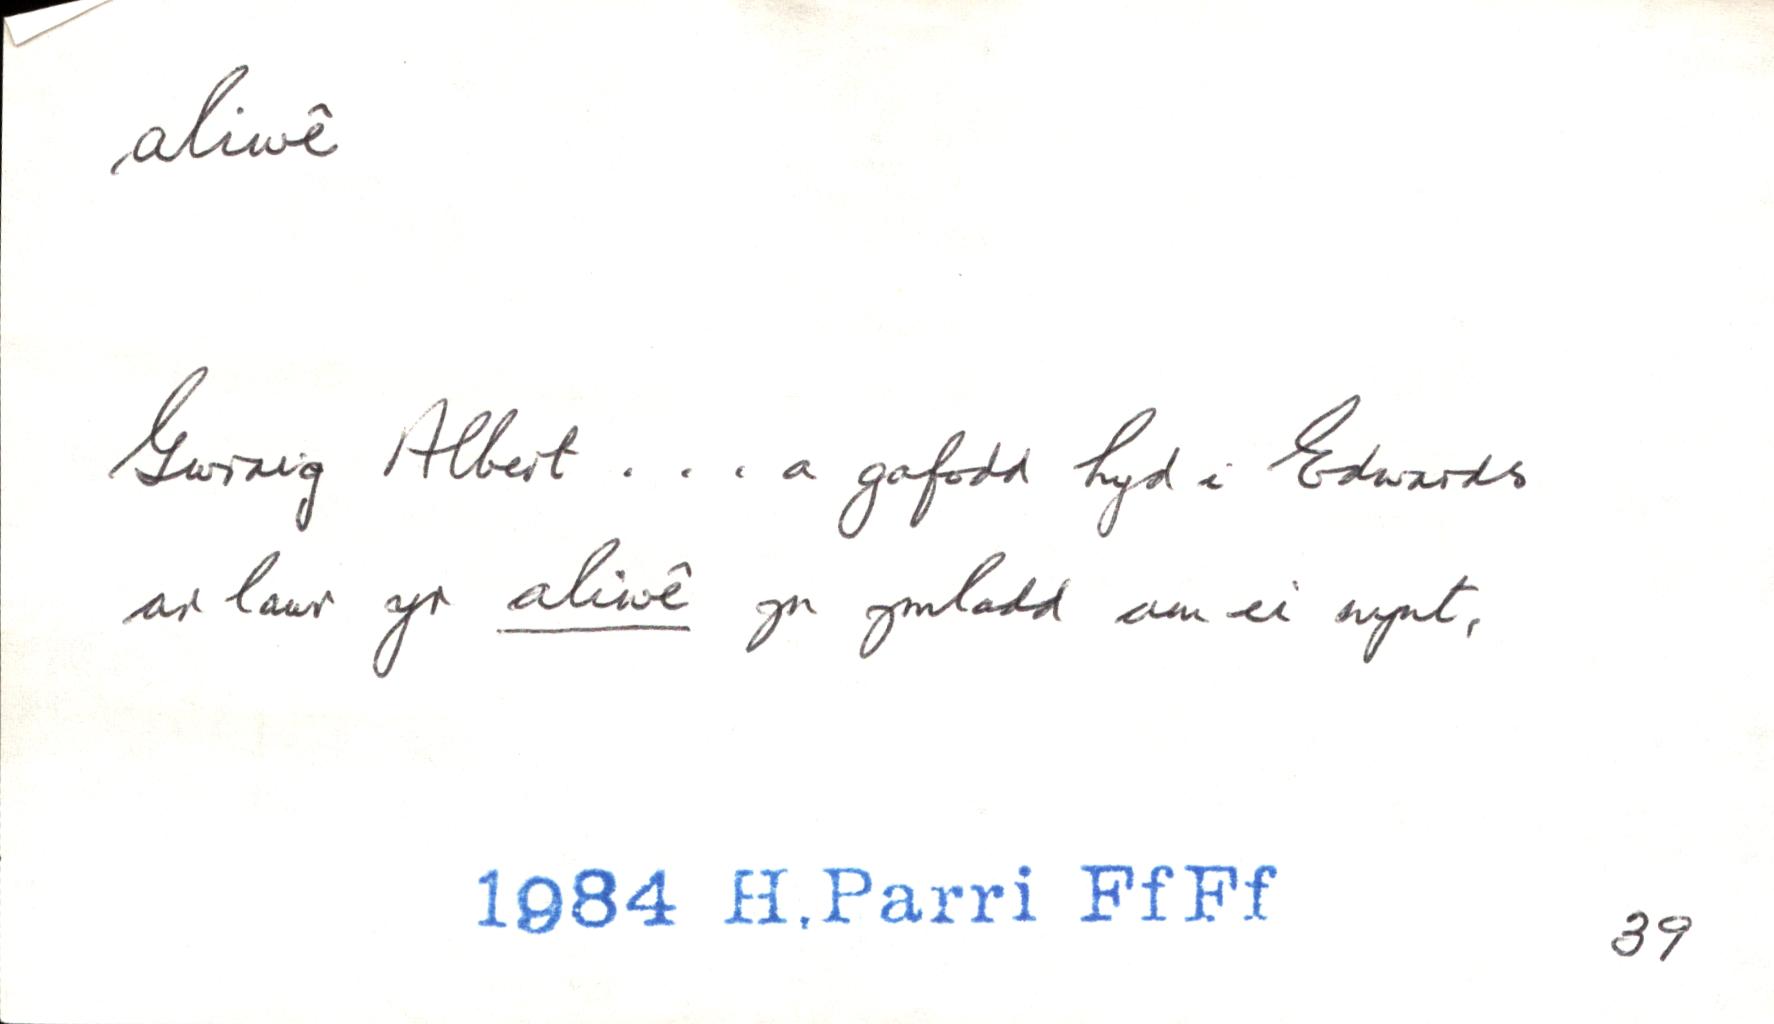 aliwê
Gwraig Albert . . . a gafodd hyd i Edwards
ar lawr yr aliwê yn ymladd am ei wynt,
1984 H.Parri FfFf
39